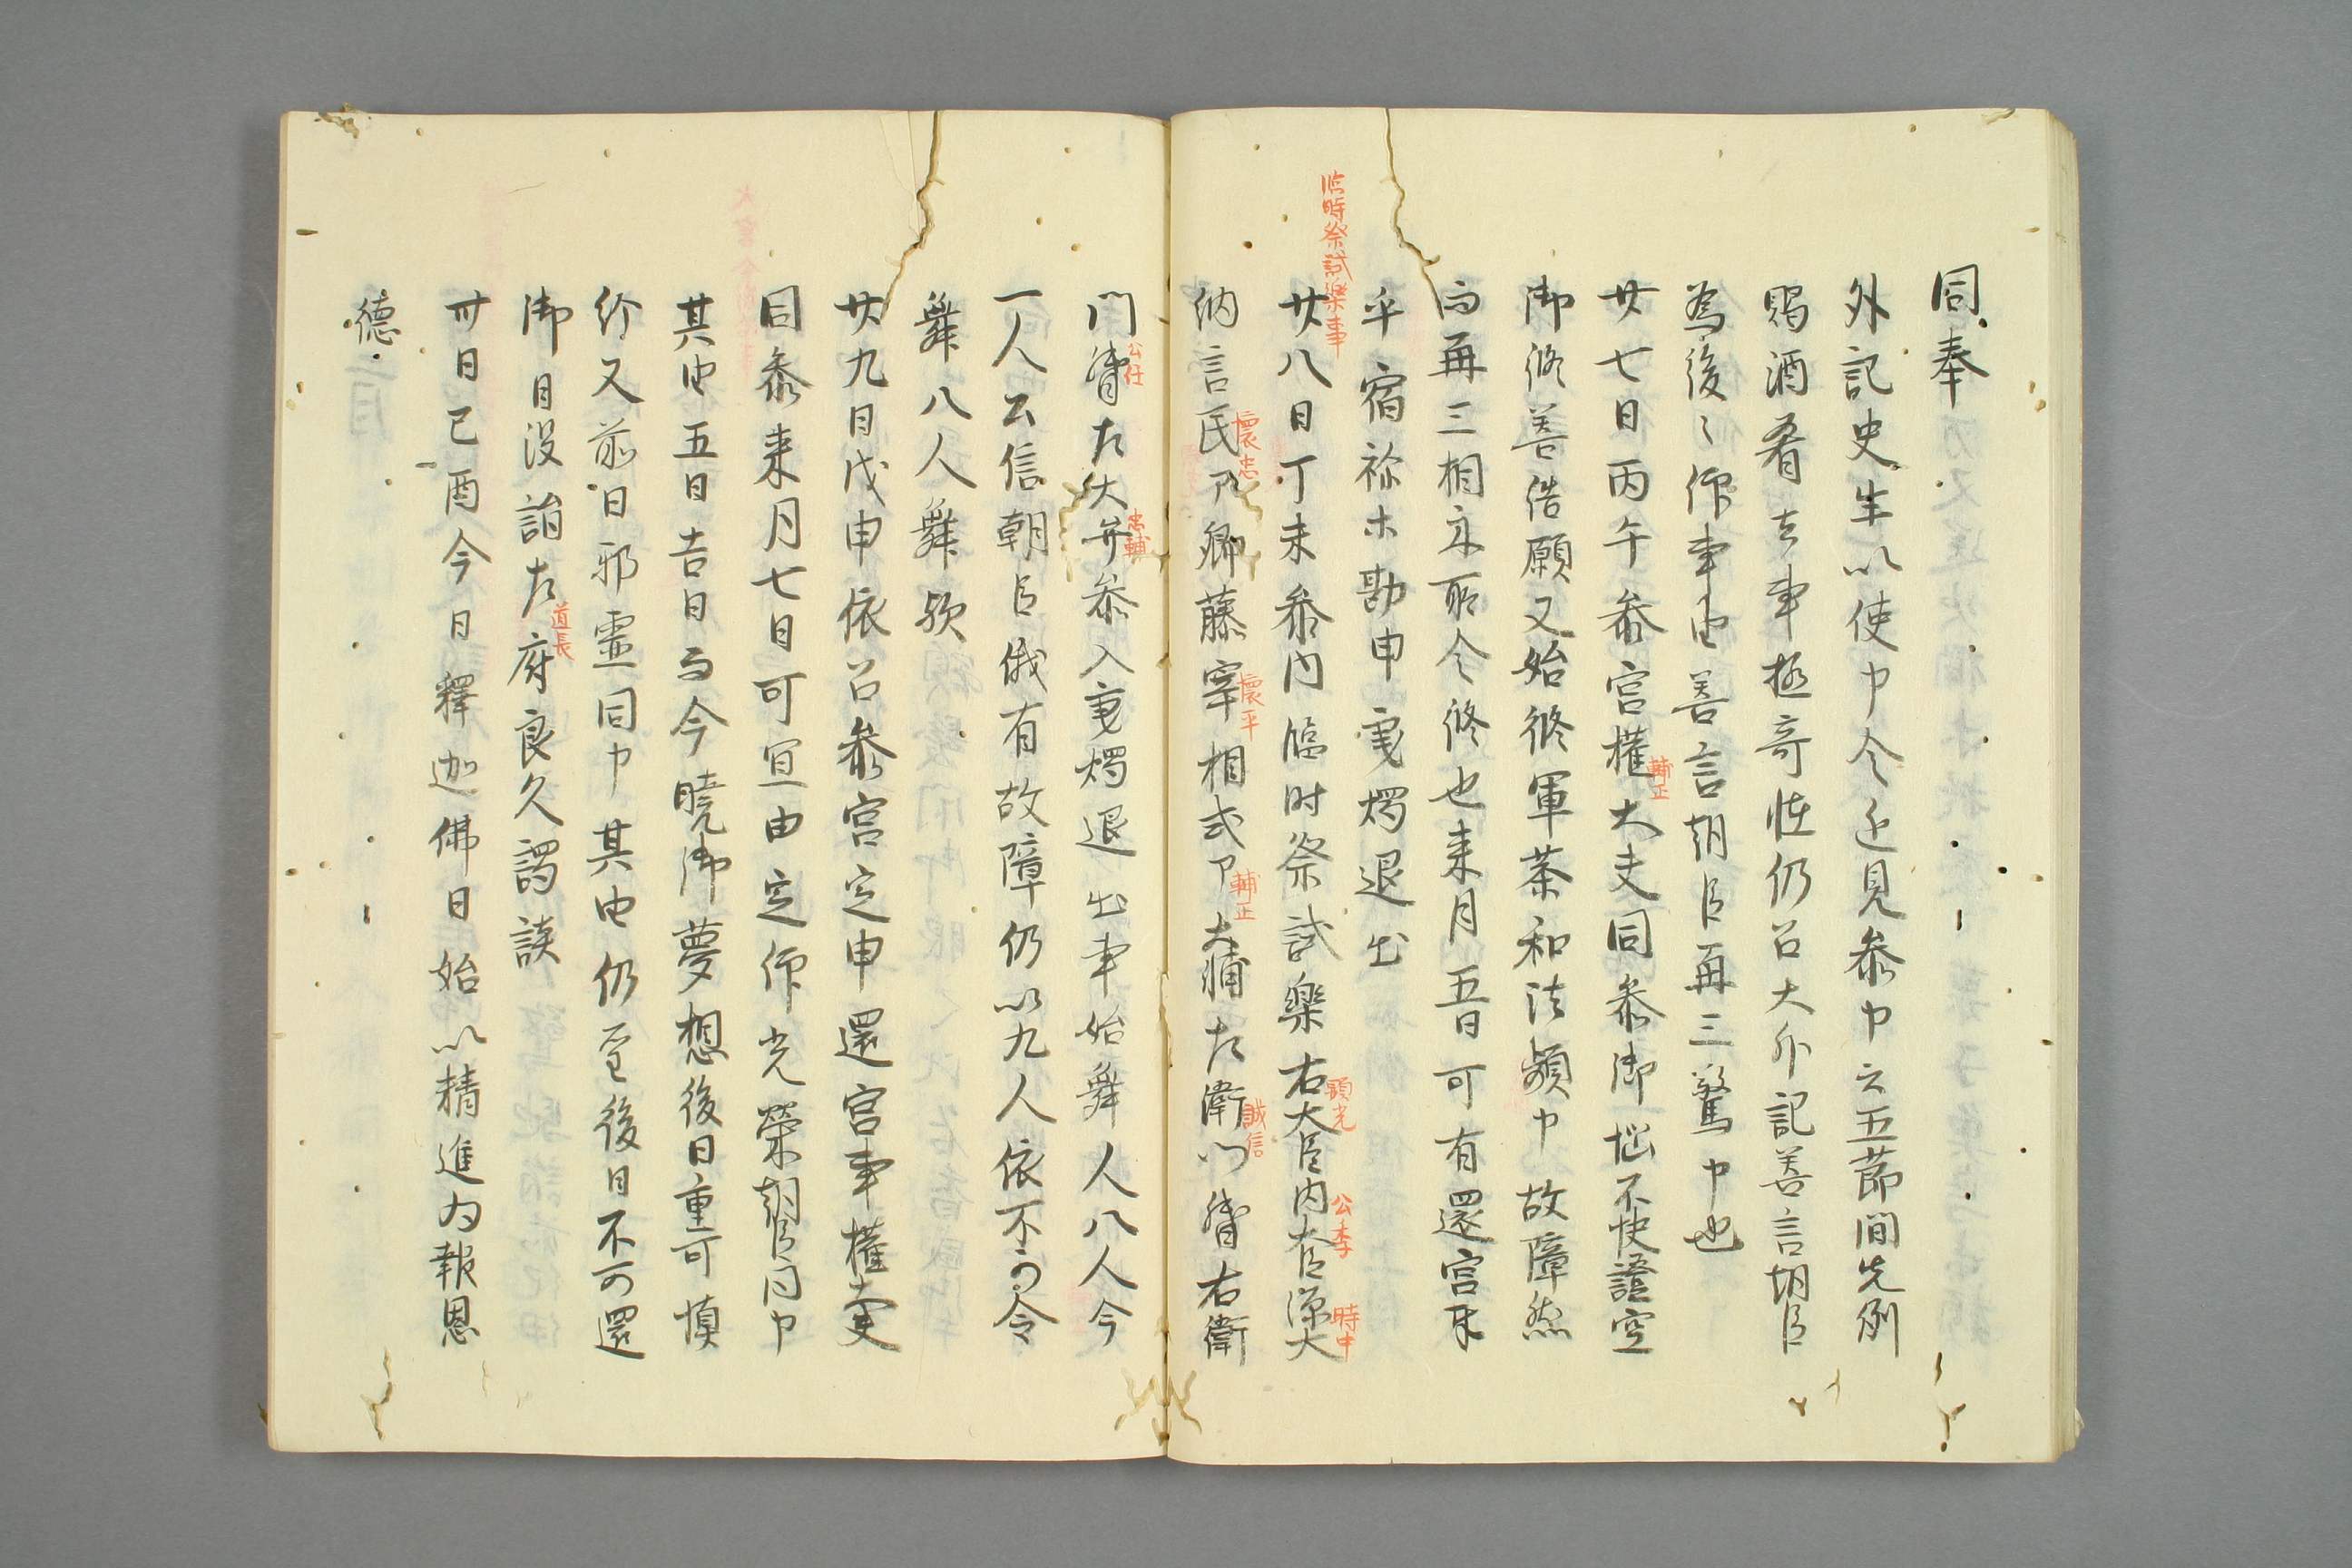 同奉
外記史生以使申令返見参申云五節間先例
賜酒肴之事極奇恠仍召大外記善言朝臣
為後々仰事由善言朝臣再三驚申也
廿七日丙午参宮権大夫同参御悩不快證空
輔正
御修善結願又始修軍荼和法頻申故障然
而再三相示所令修也来月五日可有還宮月
乎宿祢等勘申秉燭退出
臨時祭試樂事
廿八日丁未参内臨時祭試樂右大臣内大臣源大
顕光
公季
時中
納言民部卿藤宰相式部大輔左衛門督右衛
懐忠
懐平
輔正
誠信
門督左大弁参入秉燭退出事始舞人八人今
公任
忠輔
一人公信朝臣俄有故障仍以九人依不可令
舞八人舞歟
廿九日戊申依召参宮定申還宮事権大夫
同参来月七日可宜由定仰光榮朝臣同申
其由五日吉日而今曉御夢想後日重可慎
給又前日邪靈同申其由仍至後日不可還
御日没詣左府良久謁談
道長
卅日己酉今日釋迦佛日始以精進為報恩
德